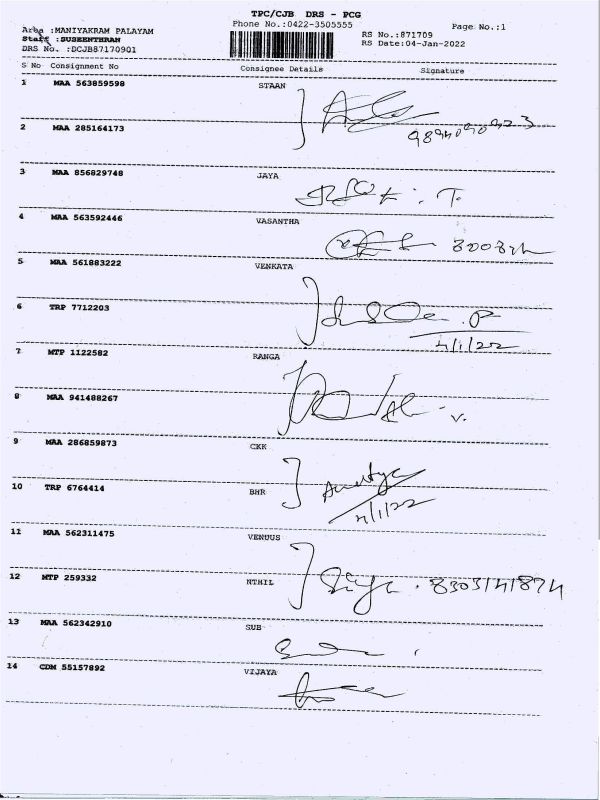 TPC/CJB DRS - PCG
Phone No.:0422-3505555 Page No.:1
Area :MANIYAKRAM PALAYAM
Staff :SUSEENTHRAN
DRS No. :DCJB87170901
RS No.:871709
RS Date:04-Jan-2022
S No Consignment No Consignee Details Signature
1 MAA 563859598 STAAN
2 MAA 285164173
3 MAA 856829748 JAYA
T.
4 MAA 563592446 VASANTHA
5 MAA 561883222 VENKATA
6 TRP 7712203
P
4/1/22
7 MTP 1122582 RANGA
8 MAA 941488267
v.
9 MAA 286859873 CKK
10 TRP 6764414 BHR
4/1/22
11 MAA 562311475 VENUUS
12 MTP 259332 NTHIL
13 MAA 562342910 SUB
14 CDM 55157892 VIJAYA